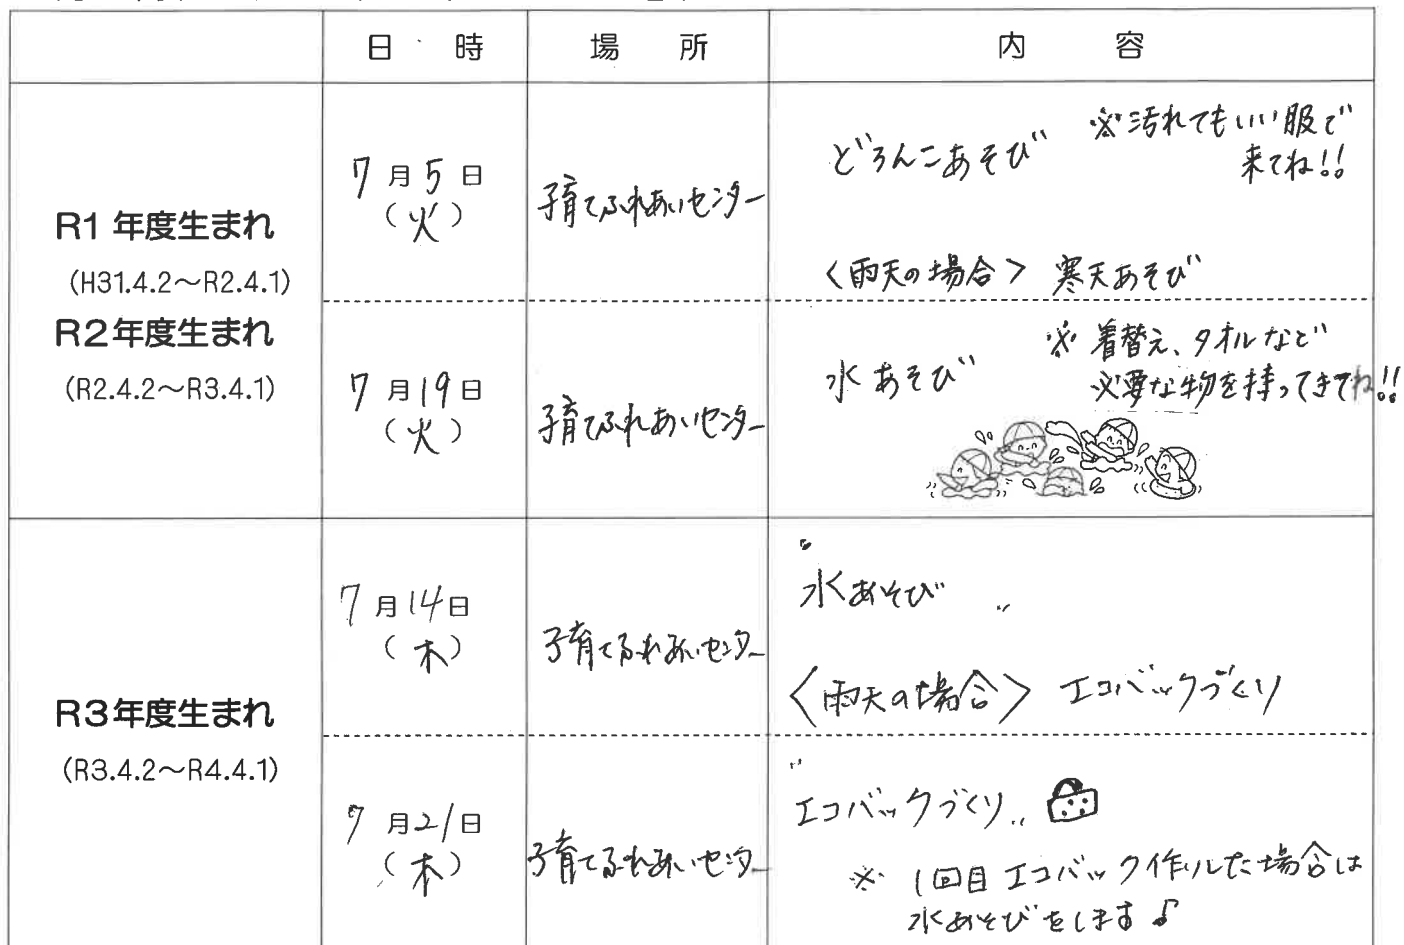 日 時 場 所 内 容
R1 年度生まれ
(H31.4.2～R2.4.1)
R2年度生まれ
(R2.4.2～R3.4.1)
7月5日
(火)
子育てふれあいセンター
どろんこあそび
※汚れてもいい服で
来てね!!
〈雨天の場合〉 寒天あそび
7月19日
(火)
子育てふれあいセンター
水あそび
※着替え、タオルなど
必要な物を持ってきてね!!
R3年度生まれ
(R3.4.2～R4.4.1)
7月14日
(木)
子育てふれあいセンター
水あそび
〈雨天の場合〉 エコバックづくり
7月21日
(木)
子育てふれあいセンター
エコバックづくり
※ 1回目エコバック作りした場合は
水あそびをします♪